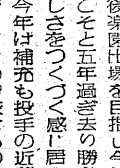 後楽園出場を目指し今
こそと五年過ぎ去り勝
しさをつくづく感じ居
今年は補充も投手の近